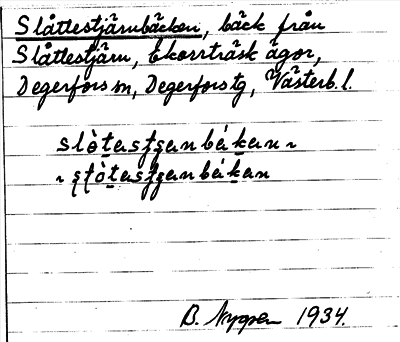 Slåttestjärnbäcken, bäck från
Slåttestjärn, Ekorrträsk ägor,
Degerfors sn, Degerfors tg, Västerb. l.
B. Nygren 1934.